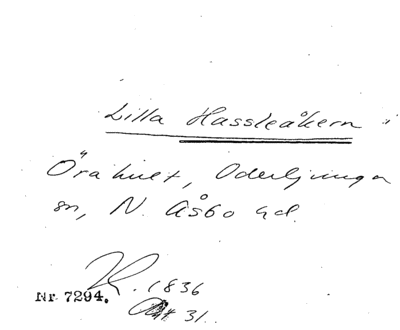 Lilla Hassleåkern
Örahult, Oderljunga
sn, N. Åsbo hd.
R. 1836
Nr 7294. Akt 31.